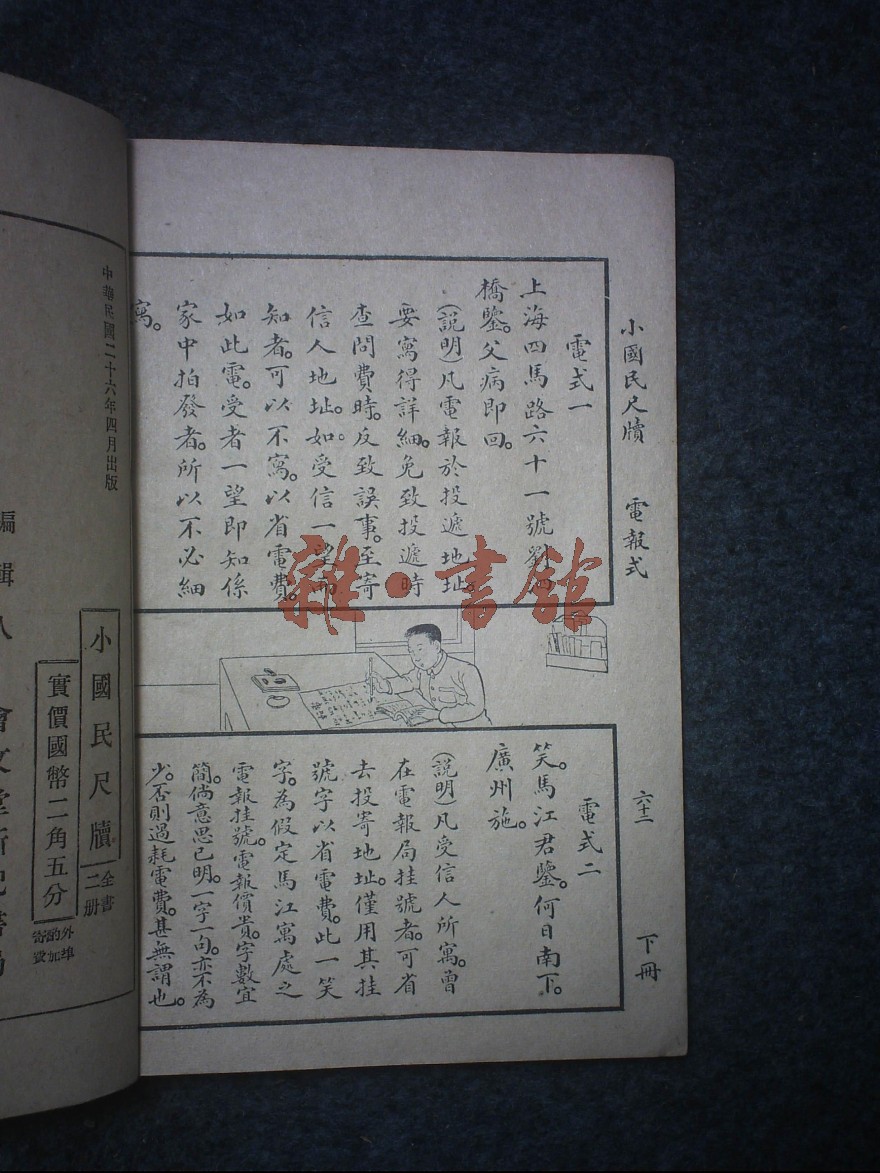 小國民尺牘
電報式
六十二
下冊
電式一
上海四馬路六十一號劉四
橋鑒。父病即回。
(説明)凡電報於投遞地址。
要寫得詳細。免致投遞時
查問費時。反致誤事。至寄
信人地址。如受信一望而
知者。可以不寫。以省電費。
如此電。受者一望即知係
家中拍發者。所以不必細
寫。
電式二
笑。馬江君鑒。何日南下。
廣州施。
(説明)凡受信人所寓。曾
在電報局挂號者。可省
去投寄地址。僅用其挂
號字以省電費。此一笑
字。為假定馬江寓處之
電報挂號。電報價貴。字數宜
簡。倘意思已明。一字一句。亦不為
少。否則過耗電費。甚無謂也。
中華民國二十六年四月出版
小國民尺牘
全書
二册
實價國幣二角五分
外埠
酌加
寄費
編輯
雜·書館